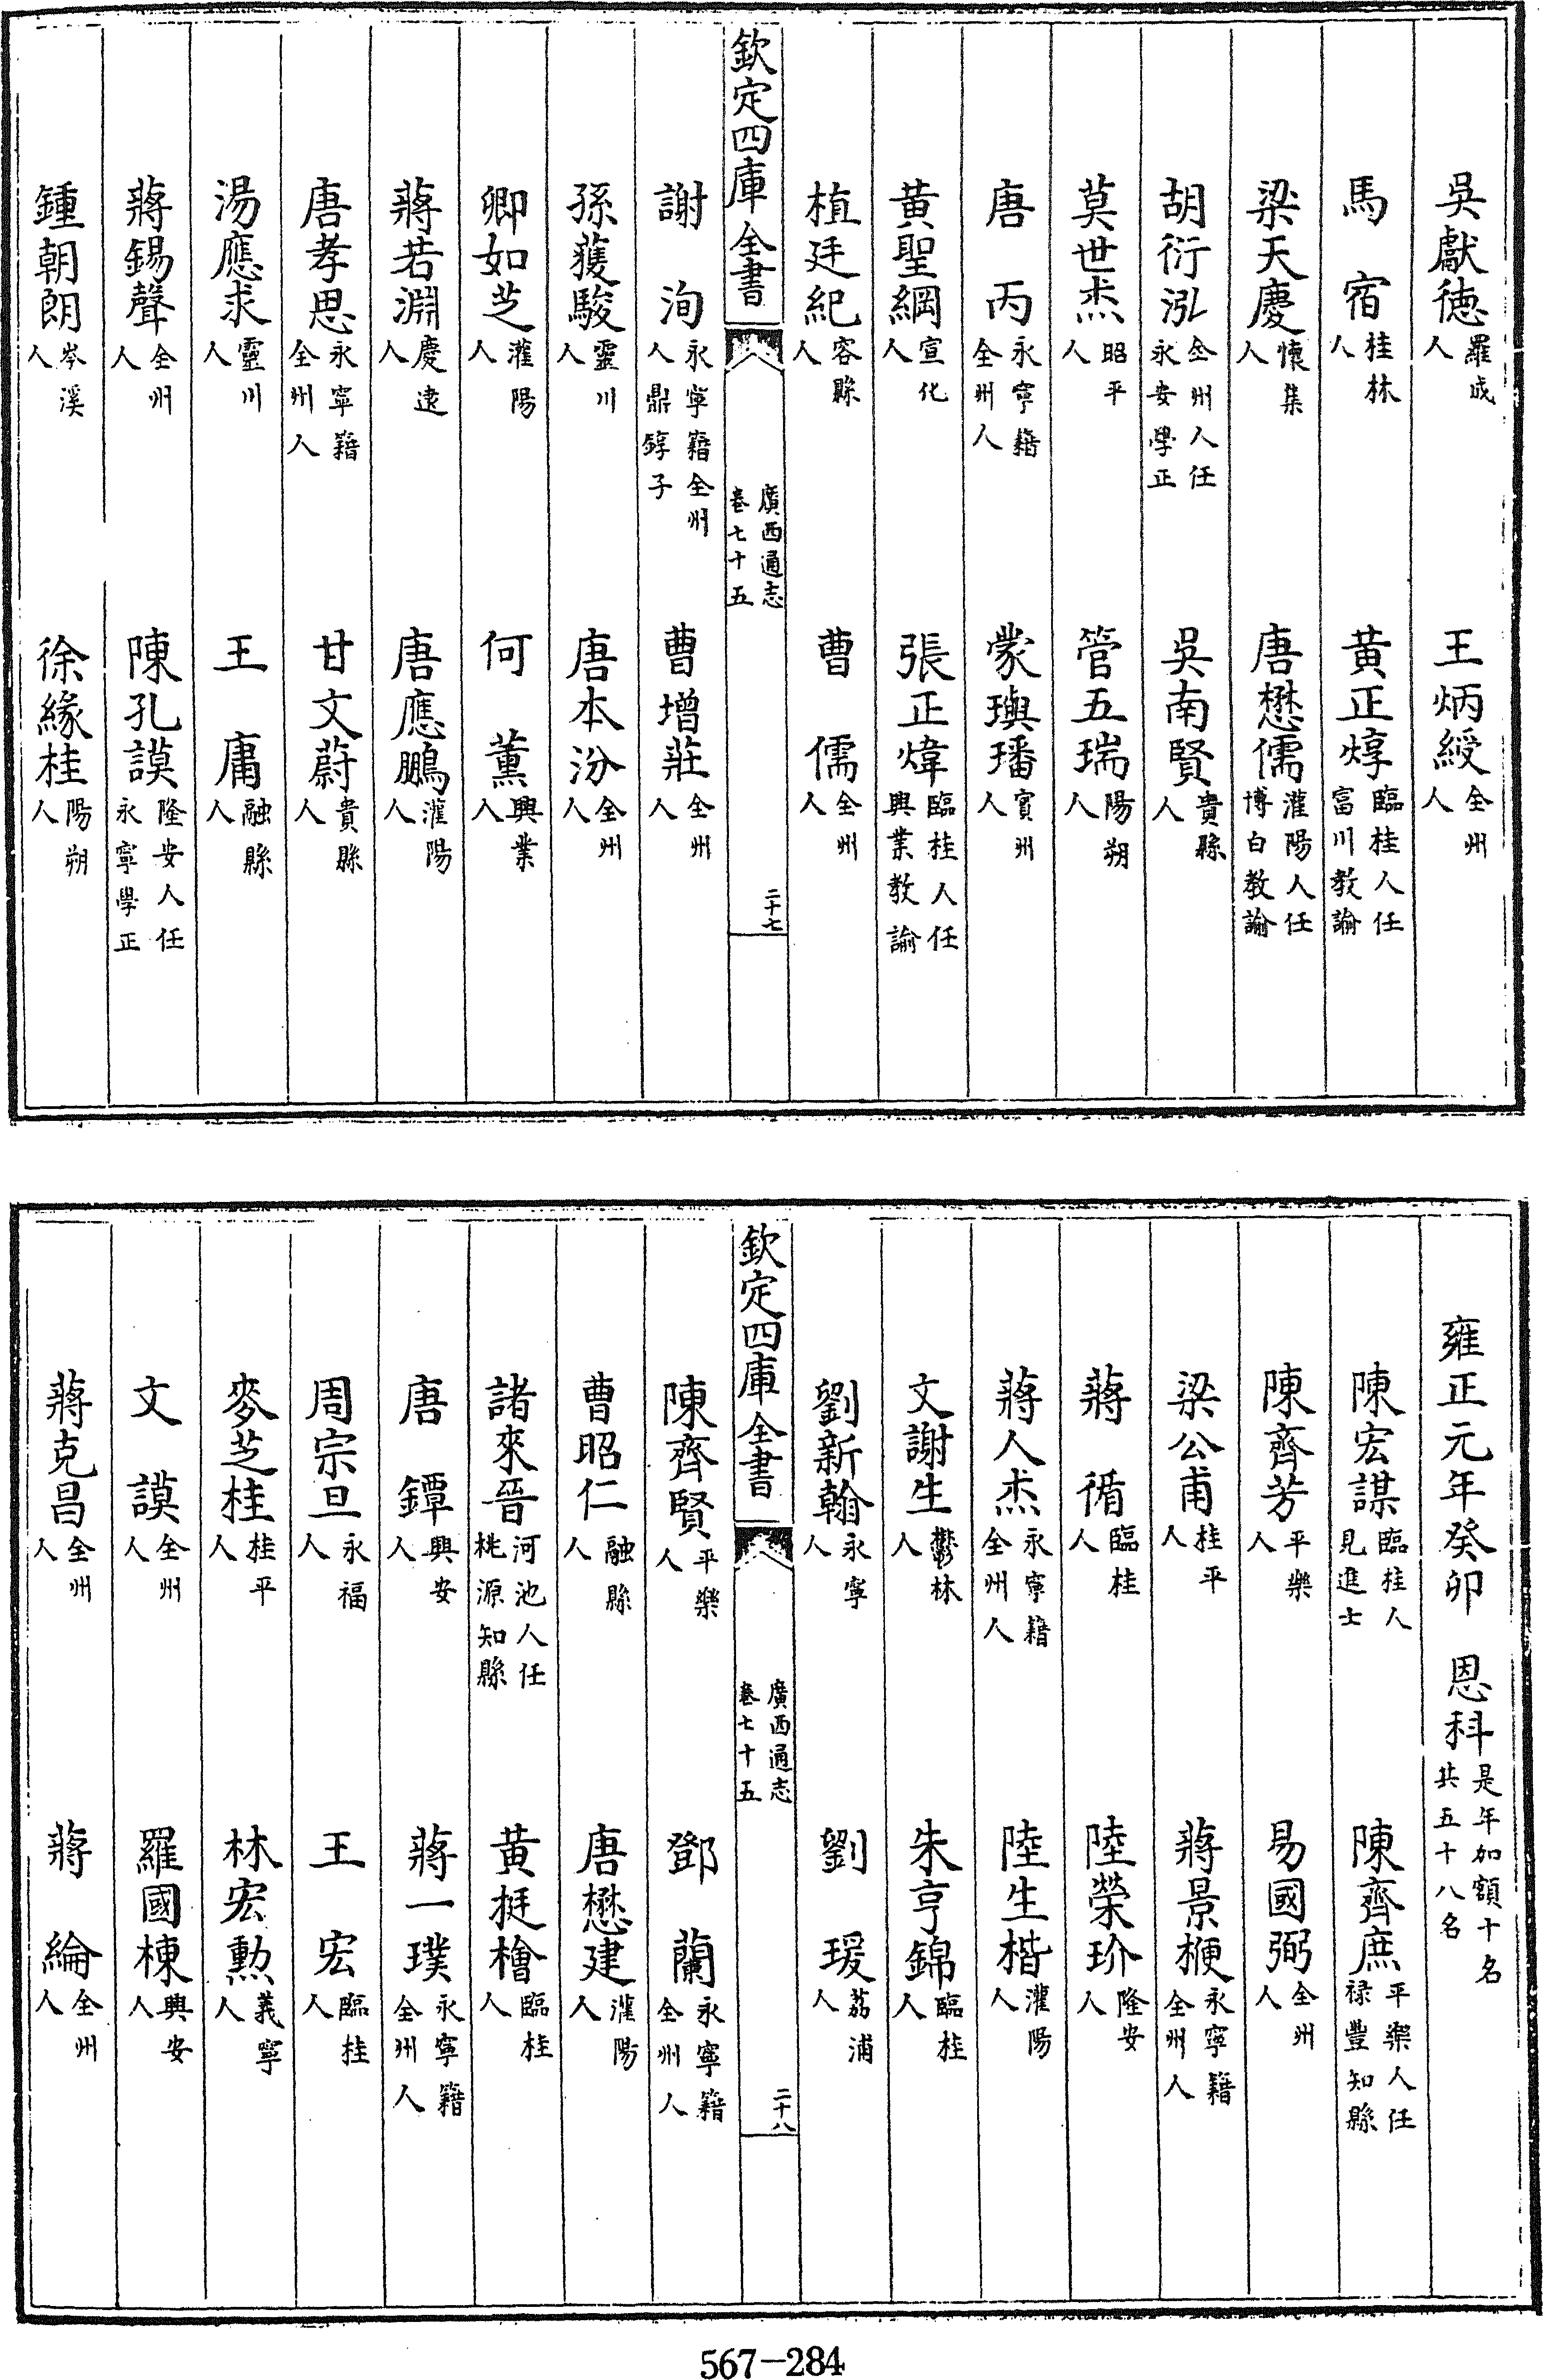 吳獻徳羅城人　王炳綬全州人
馬宿桂林人　黄正焞臨桂人任富川教諭
梁天慶懷集人　唐懋儒灌陽人任博白教諭
胡衍泓全州人任永安學正　吳南賢貴縣人
莫世杰昭平人　管五瑞陽朔人
唐丙永寧籍全州人　蒙璵璠賓州人
黄聖綱宣化人　張正煒臨桂人任興業教諭
植廷紀容縣人　曹儒全州人
欽定四庫全書　廣西通志卷七十五　二十七
謝洵永寧籍全州人鼎錞子　曹增莊全州人
孫蒦駿靈川人　唐本汾全州人
卿如芝灌陽人　何薰興業人
蔣若淵慶遠人　唐應鵬灌陽人
唐孝思永寧籍全州人　甘文蔚貴縣人
湯應求靈川人　王庸融縣人
蔣錫聲全州人　陳孔謨隆安人任永寧學正
鍾朝朗岑溪人　徐緣桂陽朔人
雍正元年癸卯　恩科是年加額十名共五十八名
陳宏謀臨桂人見進士　陳齊庶平樂人任祿豐知縣
陳齊芳平樂人　易國弼全州人
梁公甫桂平人　蔣景㮌永寧籍全州人
蔣循臨桂人　陸榮玠隆安人
蔣人杰永寧籍全州人　陸生楷灌陽人
文謝生鬱林人　朱亨錦臨桂人
劉新翰永寧人　劉瑗荔浦人
欽定四庫全書　廣西通志卷七十五　二十八
陳齊賢平樂人　鄧蘭永寧籍全州人
曹昭仁融縣人　唐懋建灌陽人
諸來晉河池人任桃源知縣　黄挺檜臨桂人
唐鐔興安人　蔣一璞永寧籍全州人
周宗旦永福人　王宏臨桂人
麥芝桂桂平人　林宏勲義寧人
文謨全州人　羅國棟興安人
蔣克昌全州人　蔣綸全州人
567-284